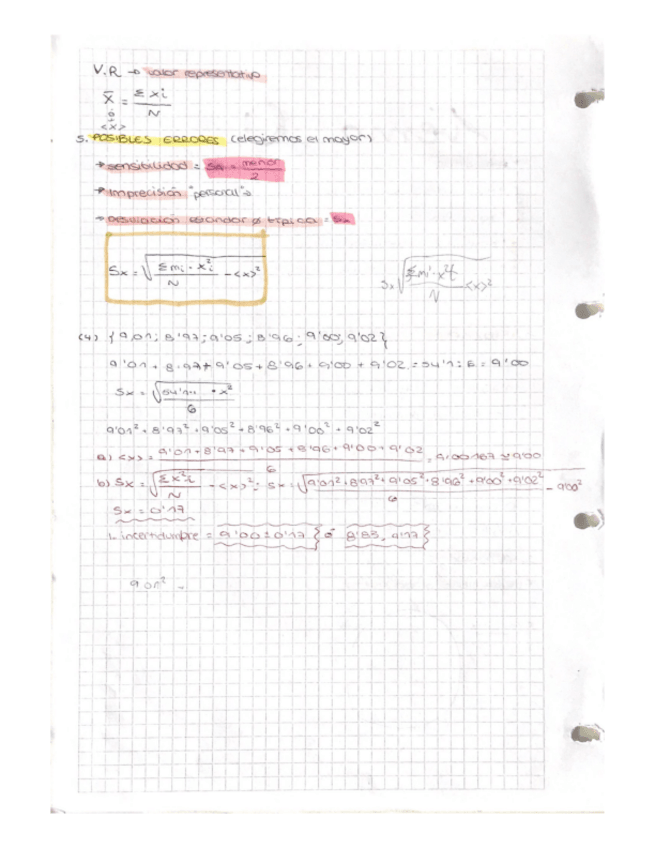 V.R → valor representativo
x̄ = Σxi / N
<x>
5. POSIBLES ERRORES (elegiremos el mayor)
→ sensibilidad = Sa = menor / 2
→ Imprecisión "personal" →
→ Desviación estandar o típica = Sx
Sx = √(Σmi · xi² / N - <x>²)
Sx √(Σmi · x² / N <x>²)
(4) {9'01; 8'97; 9'05; 8'96; 9'00; 9'02}
9'01 + 8'97 + 9'05 + 8'96 + 9'00 + 9'02 = 54'1 : 6 = 9'00
Sx = √(54'1... · x² / 6)
9'01² + 8'97² + 9'05² + 8'96² + 9'00² + 9'02²
a) <x> = 9'01 + 8'97 + 9'05 + 8'96 + 9'00 + 9'02 / 6 = 9,00167 ≃ 9'00
b) Sx = √(Σx²i / N - <x>²) = Sx = √(9'01² + 8'97² + 9'05² + 8'96² + 9'00² + 9'02² / 6 - 9'00²)
Sx = 0'17
L incertidumbre = 9'00 ± 0'17 } ó 8'83, 9'17 }
9.01²